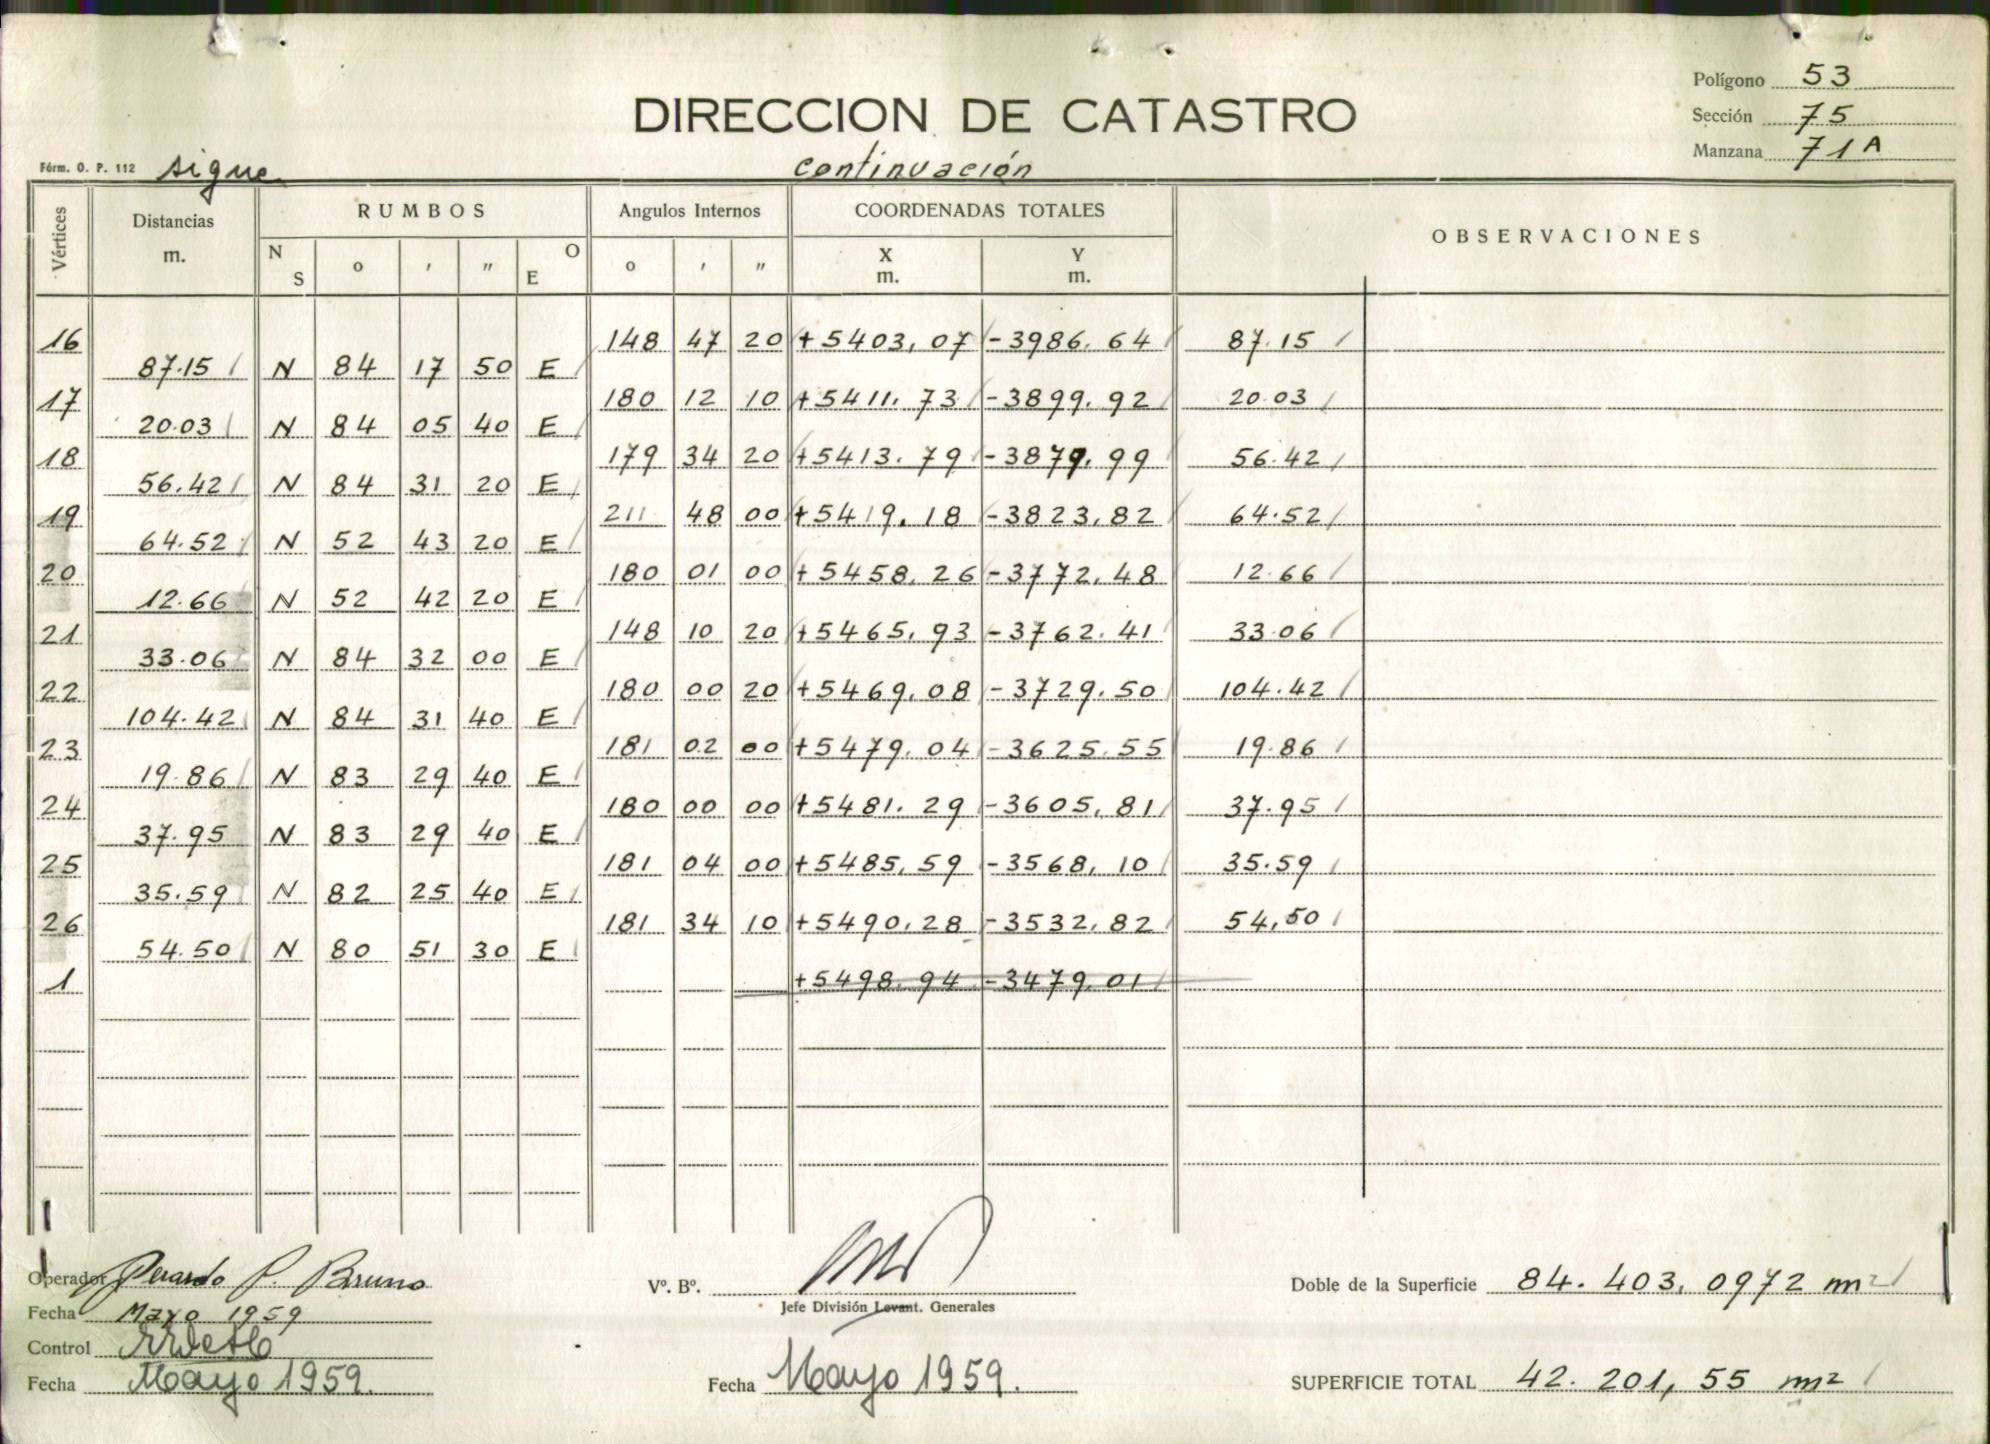 Polígono 53
DIRECCION DE CATASTRO
Sección 75
Manzana 71 A
Fórm. O. P. 112 sigue continuación
Vértices Distancias m. RUMBOS N S ° ' " O E Angulos Internos ° ' " COORDENADAS TOTALES X m. Y m. OBSERVACIONES
16 148 47 20 +5403,07 -3986.64 87.15
87.15 N 84 17 50 E
17 180 12 10 +5411.73 -3899.92 20.03
20.03 N 84 05 40 E
18 179 34 20 +5413.79 -3879.99 56.42
56.42 N 84 31 20 E
19 211 48 00 +5419.18 -3823,82 64.52
64.52 N 52 43 20 E
20 180 01 00 +5458.26 -3772.48 12.66
12.66 N 52 42 20 E
21 148 10 20 +5465.93 -3762.41 33.06
33.06 N 84 32 00 E
22 180 00 20 +5469.08 -3729.50 104.42
104.42 N 84 31 40 E
23 181 02 00 +5479.04 -3625.55 19.86
19.86 N 83 29 40 E
24 180 00 00 +5481.29 -3605,81 37.95
37.95 N 83 29 40 E
25 181 04 00 +5485,59 -3568,10 35.59
35.59 N 82 25 40 E
26 181 34 10 +5490,28 -3532,82 54,50
54.50 N 80 51 30 E
1 +5498.94 -3479.01
Operador P. Bruno Vº. Bº. Doble de la Superficie 84.403,0972 m²
Fecha Mayo 1959 Jefe División Levant. Generales
Control
Fecha Mayo 1959. Fecha Mayo 1959. SUPERFICIE TOTAL 42.201,55 m²